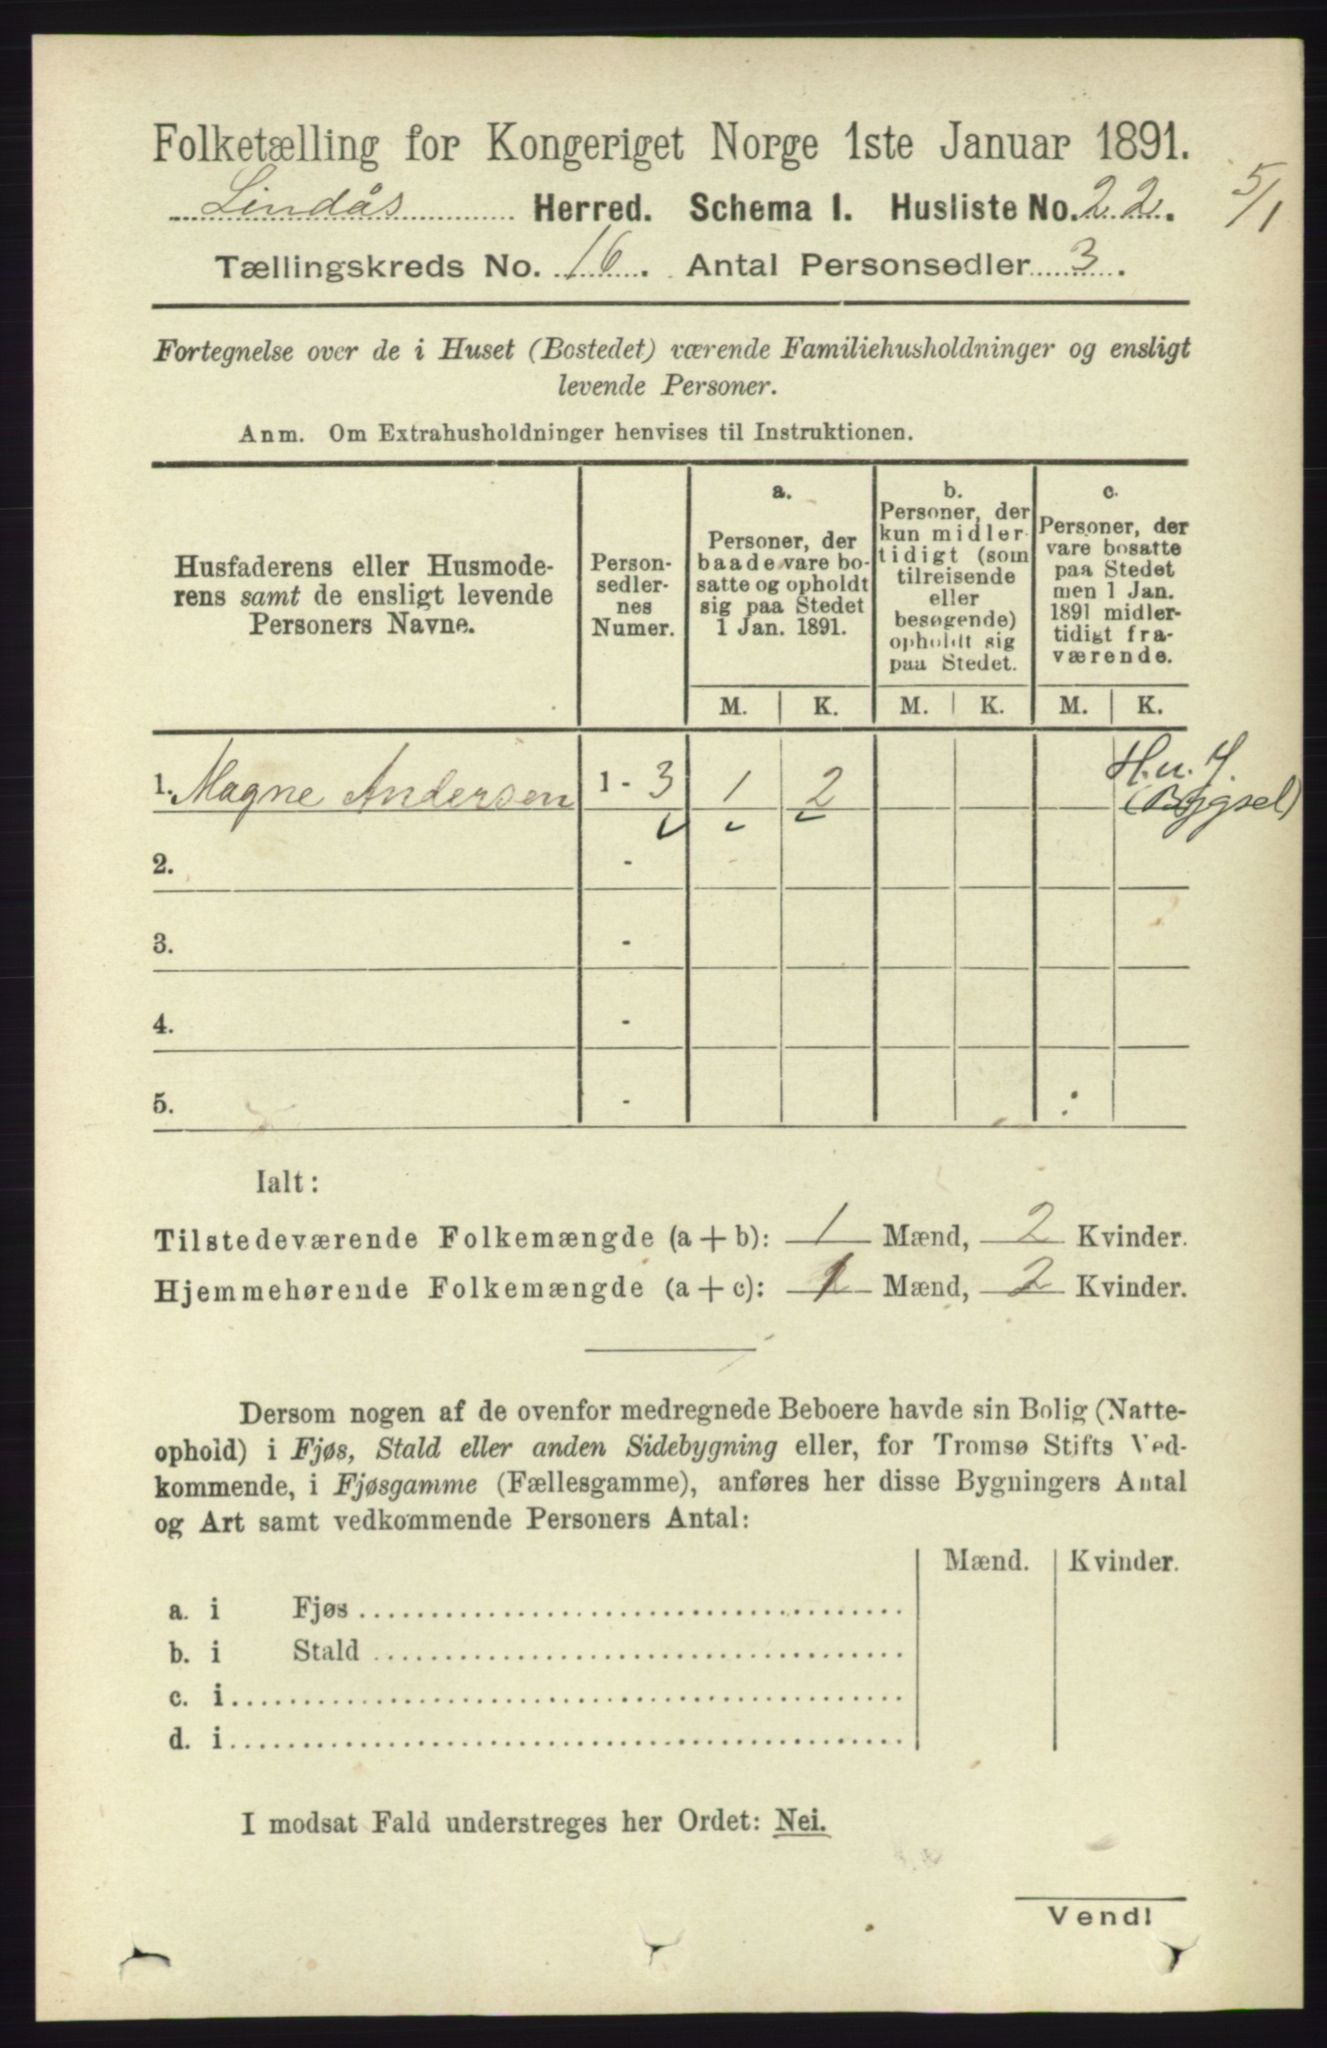 Folketælling for Kongeriget Norge 1ste Januar 1891.
Lindås Herred. Schema I. Husliste No. 22.
5/1
Tællingskreds No. 16. Antal Personsedler 3.
Fortegnelse over de i Huset (Bostedet) værende Familiehusholdninger og ensligt
levende Personer.
Anm. Om Extrahusholdninger henvises til Instruktionen.
Husfaderens eller Husmode-
rens samt de ensligt levende
Personers Navne.
Person-
sedler-
nes
Numer.
a.
Personer, der
baade vare bo-
satte og opholdt
sig paa Stedet
1 Jan. 1891.
b.
Personer, der
kun midler-
tidigt (som
tilreisende
eller
besøgende)
opholdt sig
paa Stedet.
c.
Personer, der
vare bosatte
paa Stedet
men 1 Jan.
1891 midler-
tidigt fra-
værende.
M. K. M. K. M. K.
1. Magne Andersen 1 - 3 1 2
(Bygsel)
2. -
3. -
4. -
5. -
Ialt:
Tilstedeværende Folkemængde (a + b): 1 Mænd, 2 Kvinder.
Hjemmehørende Folkemængde (a + c): 1 Mænd, 2 Kvinder.
Dersom nogen af de ovenfor medregnede Beboere havde sin Bolig (Natte-
ophold) i Fjøs, Stald eller anden Sidebygning eller, for Tromsø Stifts Ved-
kommende, i Fjøsgamme (Fællesgamme), anføres her disse Bygningers Antal
og Art samt vedkommende Personers Antal:
Mænd. Kvinder.
a. i Fjøs
b. i Stald
c. i
d. i
I modsat Fald understreges her Ordet: Nei.
Vend!